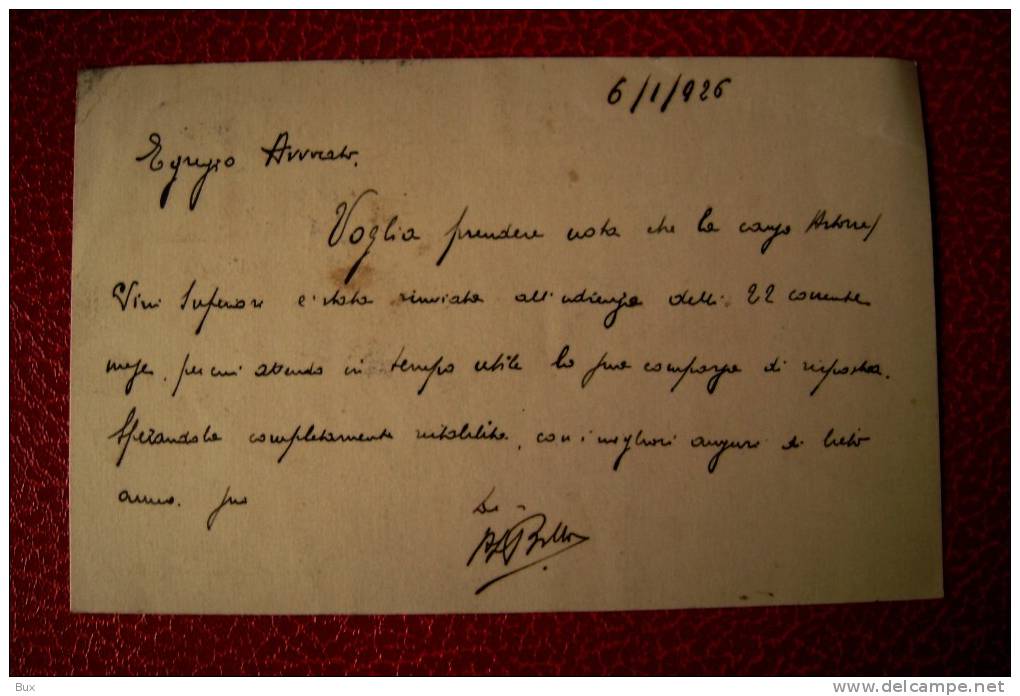 6/1/926
Egregio Avvocato,
Voglia prendere nota che la causa Astorre/
Vini Superiori è stata rinviata all'udienza delli 22 corrente
mese, per cui attendo in tempo utile la sua comparsa di risposta.
Sperandola completamente ristabilita, con i migliori auguri di lieto
anno. suo
Bux
www.delcampe.net